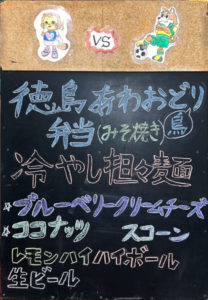 VS
徳島あわおどり
弁当(みそ焼き)鳥
冷やし担々麺
☆ブルーベリークリームチーズ
☆ココナッツ スコーン
レモンハイ ハイボール
生ビール